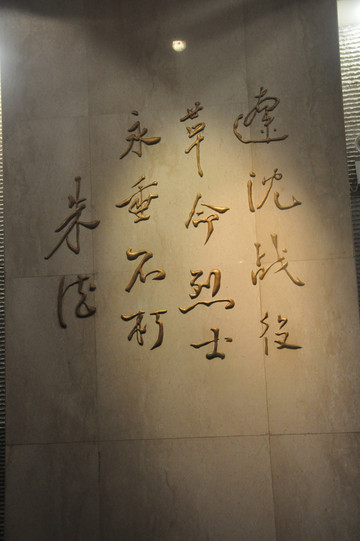 辽沈战役
革命烈士
永垂不朽
朱德